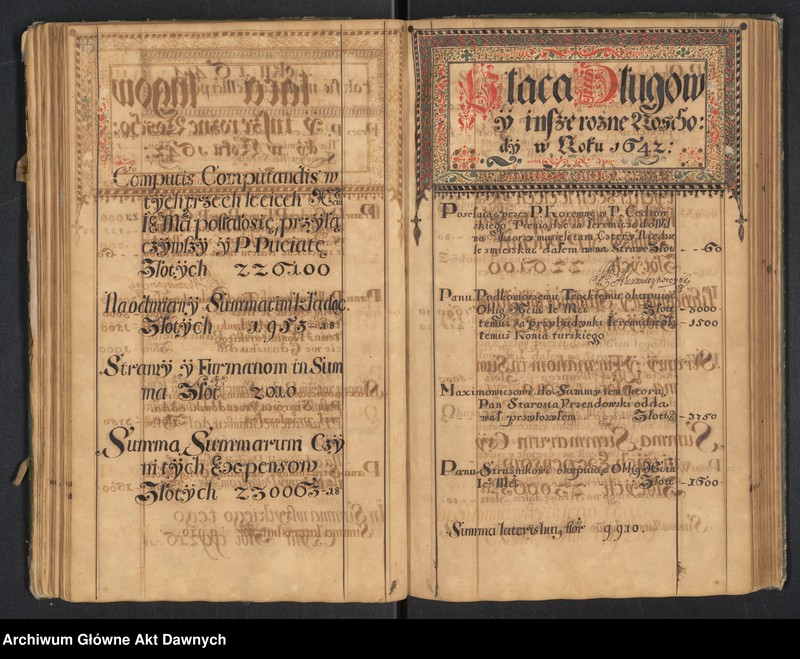 Computis Computandis w
tych trzech leciech Xcia
Je Mci pozostałość, przyłą
czywszy y P Puciatę
Złotych 226100
Na oćmiany Summatim kładąc
Złotych 1953-18
Strawy y Furmanom in Sum
ma Złot 2010
Summa Summarum Czy
ni tych Expensow
Złotych 230063-18
Płaca Długow
y insze rozne Roscho:
dy w Roku 1642:
Posełaiąc przez P. Koronnego P. Cedrow
skiego Pieniądze za
musiełem Cztery Niedzie
le mieszkać dałem mu na Strawę Złot - 60
Panu Podkomorzemu Trockiemu okupuiąc
Oblig Xcia Je Mci Złote - 3000
temuż za przybudynki - 1500
temuż Konia turskiego
Maximowiczowi do Summy iego ktorą
Pan Starosta Urzendowski odda
wał przyłożyłem Złotych - 3750
Panu Strasznikowi okupuiąc Oblig Xcia
Je Mci Złote - 1600
Summa lateris huius flor 9910.
Archiwum Główne Akt Dawnych